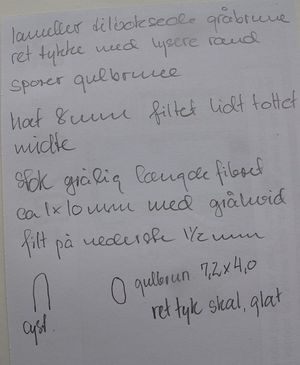 lameller tilvoksede gråbrune
ret tykke med lysere rand
sporer gulbrune
hat 8mm filtet lidt tottet
midte
stok grålig længdefibret
ca 1x10mm med gråhvid
filt på nederste 1½mm
gulbrun 7,2x4,0
cyst. ret tyk skal, glat